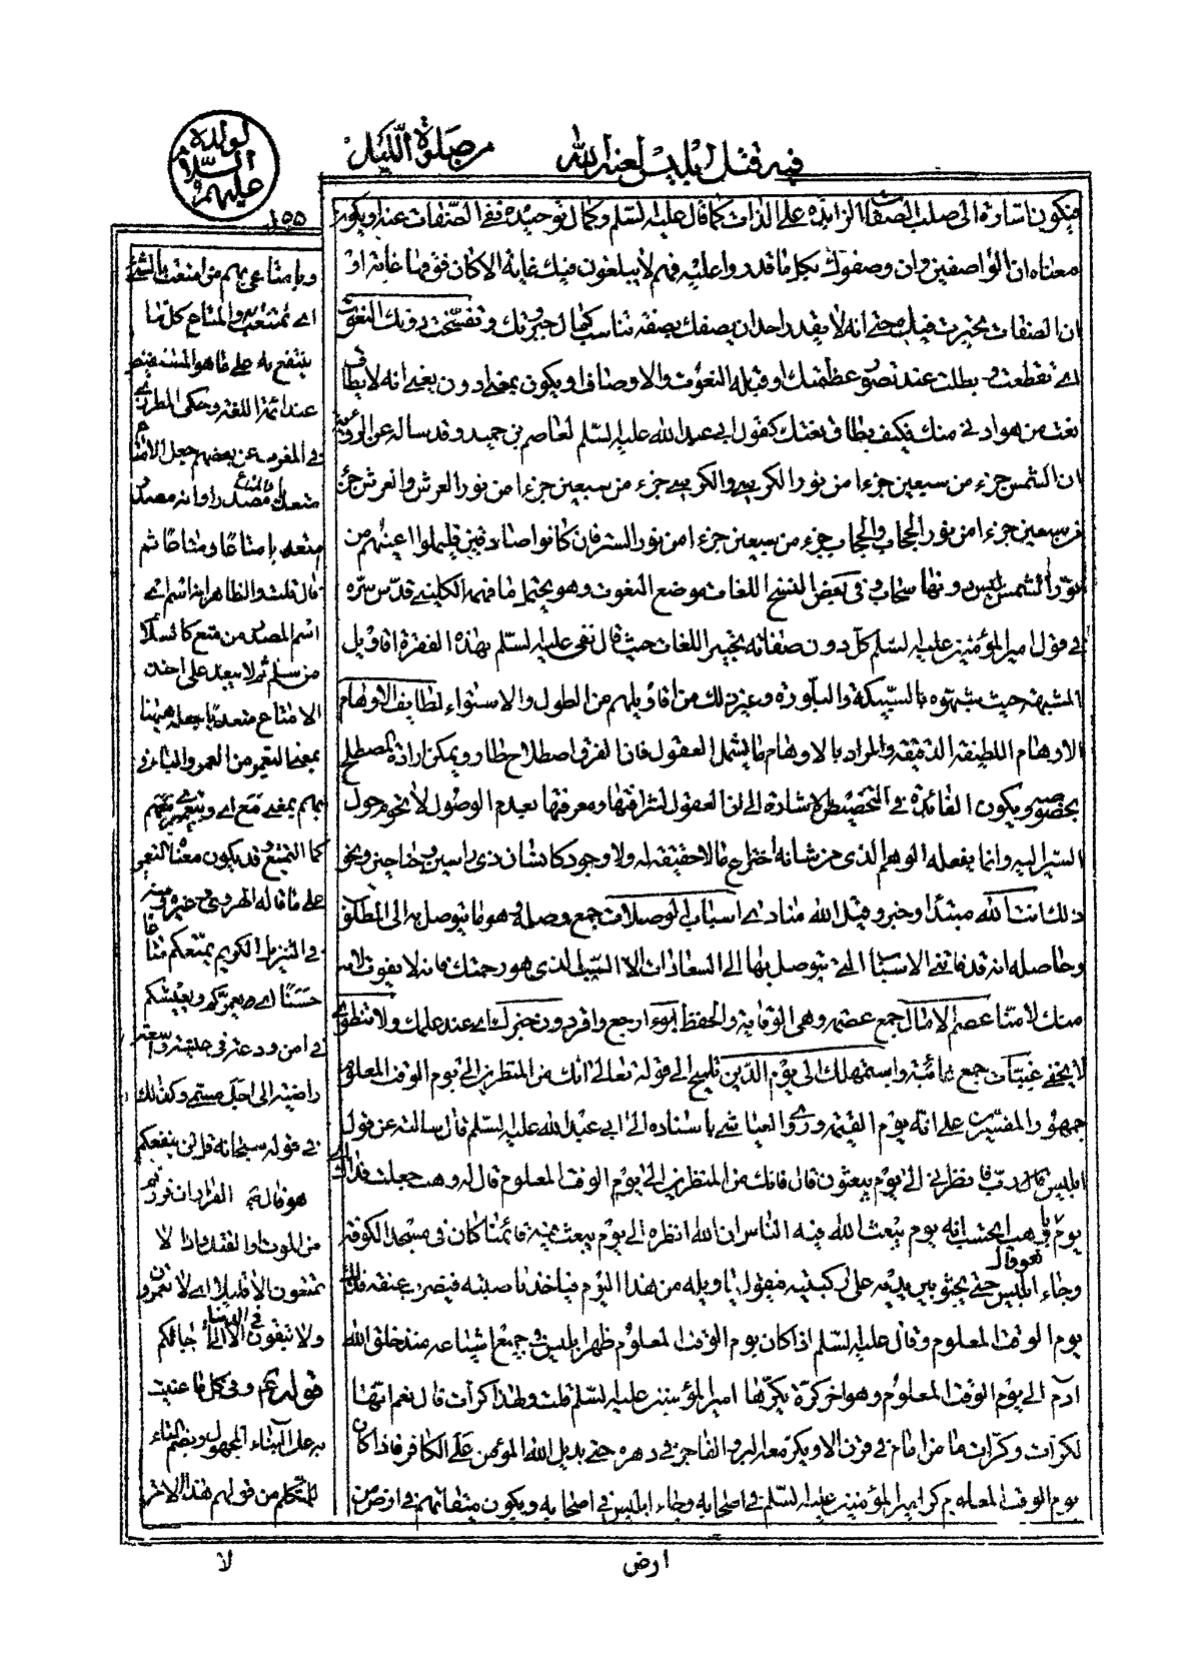 فيه قتل ابليس لعنه الله
من صلوة الليل
لولده السلام عليهم
١٥٥
فيكون اشارة الى صلب الصفات الزائدة على الذات كما قال عليه السلم وكمال توحيده نفى الصفات عنه او يكون
معناه ان الواصفين وان وصفوك بكل ما قدروا عليه فهم لا يبلغون فيك غاية الا كان فوقها غاية او
ان الصفات تحيرت فيك حتى انه لا يقدر احد ان يصفك بصفة تناسب كمال جبروتك وتفسخت دونك النعوت
اى تقطعت وبطلت عند تصور عظمتك او قبله النعوت والاوصاف او يكون بمعنى دون يعنى انه لا يطاق
نعت من هو ادنى منك فكيف يطاق نعتك كقول ابى عبد الله عليه السلم لعاصم بن حميد وقد ساله عن الرؤية
ان الشمس جزء من سبعين جزءا من نور الكرسى والكرسى جزء من سبعين جزءا من نور العرش والعرش جزء
من سبعين جزءا من نور الحجاب والحجاب جزء من سبعين جزءا من نور الستر فان كانوا صادقين فليملوا اعينهم من
نور الشمس ليس دونها سحاب وفى بعض النسخ اللغات موضع النعوت وهو يحتمل ما فهمه الكلينى قدس سره
فى قول امير المؤمنين عليه السلم كل دون صفاته تحبير اللغات حيث قال نفى عليه السلم بهذه الفقرة اقاويل
المشبهة حيث شبهوه بالسبيكة والبلورة وغير ذلك من اقاويلهم من الطول والاستواء لطايف الاوهام
الاوهام اللطيفة الدقيقة والمراد بالاوهام ما يشمل العقول فان الفرق اصطلاح طار ويمكن ارادة المصطلح
بخصوصه ويكون الفائدة فى التخصيص الاشارة الى ان العقول لشرافتها ومعرفتها بعدم الوصول لا تحوم حول
السير اليه وانما يفعله الوهم الذى من شانه اختراع ما لا حقيقة له ولا وجود كانسان ذى راسين وجناحين ونحو
ذلك انت الله مبتدأ وخبر وقيل الله منادى اسباب الوصلات جمع وصلة وهو ما يتوصل به الى المطلوب
وحاصله انه قد فاتنى الاسباب التى يتوصل بها الى السعادات الا السبب الذى هو رحمتك فانه لا يفوت لانه
منك لا منا عصم الامال جمع عصمة وهى الوقاية والحفظ ابوء ارجع واقر دون خبرك اى عند علمك ولا تنطوى
لا يخفى غيبات جمع غائبة واستمهلك الى يوم الدين تلميح الى قوله تعالى انك من المنظرين الى يوم الوقت المعلوم
جمهور المفسرين على انه يوم القيمة وروى العياشى باسناده الى ابى عبد الله عليه السلم قال سالته عن قول
ابليس قال رب فانظرنى الى يوم يبعثون قال فانك من المنظرين الى يوم الوقت المعلوم قال له وهب جعلت فداك
يوم هو قال يا وهب اتحسب انه يوم يبعث الله فيه الناس ان الله انظره الى يوم يبعث فيه قائمنا كان فى مسجد الكوفة
وجاء ابليس حتى يجثو بين يديه على ركبتيه فيقول يا ويله من هذا اليوم فياخذ ناصيته فيضرب عنقه فذلك
يوم الوقت المعلوم وقال عليه السلم اذا كان يوم الوقت المعلوم ظهر ابليس فى جميع اشياعه منذ خلق الله
ادم الى يوم الوقت المعلوم وهو اخر كرة يكرها امير المؤمنين عليه السلم قلت وانها لكرات قال نعم انها
لكرات وكرات ما من امام فى قرن الا ويكر معه البر والفاجر فى دهره حتى يديل الله المؤمن على الكافر فاذا كان
يوم الوقت المعلوم كر امير المؤمنين عليه السلم فى اصحابه وجاء ابليس فى اصحابه ويكون ميقاتهم فى ارض من
ارض
وبامتاعى بهم من امتعت بالشئ
اى تمتعت به والمتاع كل ما
ينتفع به على ما هو المستفيض
عند ائمة اللغة وحكى المطرزى
فى المغرب عن بعضهم جعل الامتاع
متعه بامتاعا ومتاعا ثم
قال قلت والظاهر انه اسم
اسم المصدر من متع كالسلام
من سلم ثم لا يبعد على احد
بمعنى التعمير من العمر والباء فى
بهم بمعنى مع اى وتبقى معهم
كما التمتع قد يكون معناه التعمير
على ما قاله الهروى
فى التنزيل الكريم يمتعكم متاعا
حسنا اى يعمركم ويعيشكم
فى امن ودعة فى
راضية الى اجل مستمى وكذلك
فى قوله سبحانه قل لن ينفعكم
الفرار ان فررتم
من الموت او القتل واذا لا
تمتعون الا قليلا اى لا تعمرون
ولا تبقون فى الدنيا الا الى اجالكم
قوله عم وفى كل ما عنيت
به على البناء للمجهول وبضم التاء
للمتكلم من قولهم هذا الامر
لا